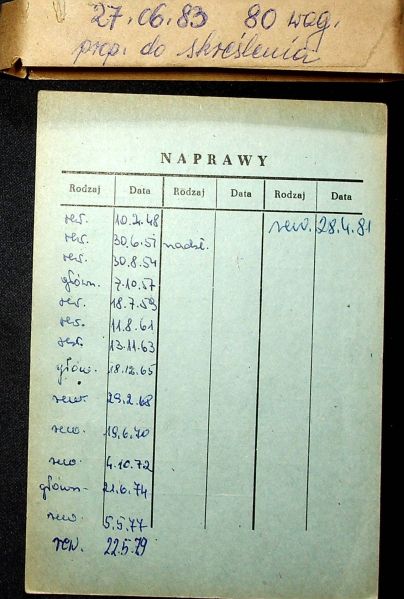 27.06.83 80 wag.
prop. do skreślenia
NAPRAWY
Rodzaj Data Rodzaj Data Rodzaj Data
rew. 10.2.48 rew. 28.4.81
rew. 30.6.51 nadzw.
rew. 30.8.54
główn. 7.10.57
rew. 18.7.59
rew. 11.8.61
rew. 13.11.63
główn. 18.12.65
rew. 29.2.68
rew. 19.6.70
rew. 4.10.72
główn. 21.6.74
rew. 5.5.77
rew. 22.5.79